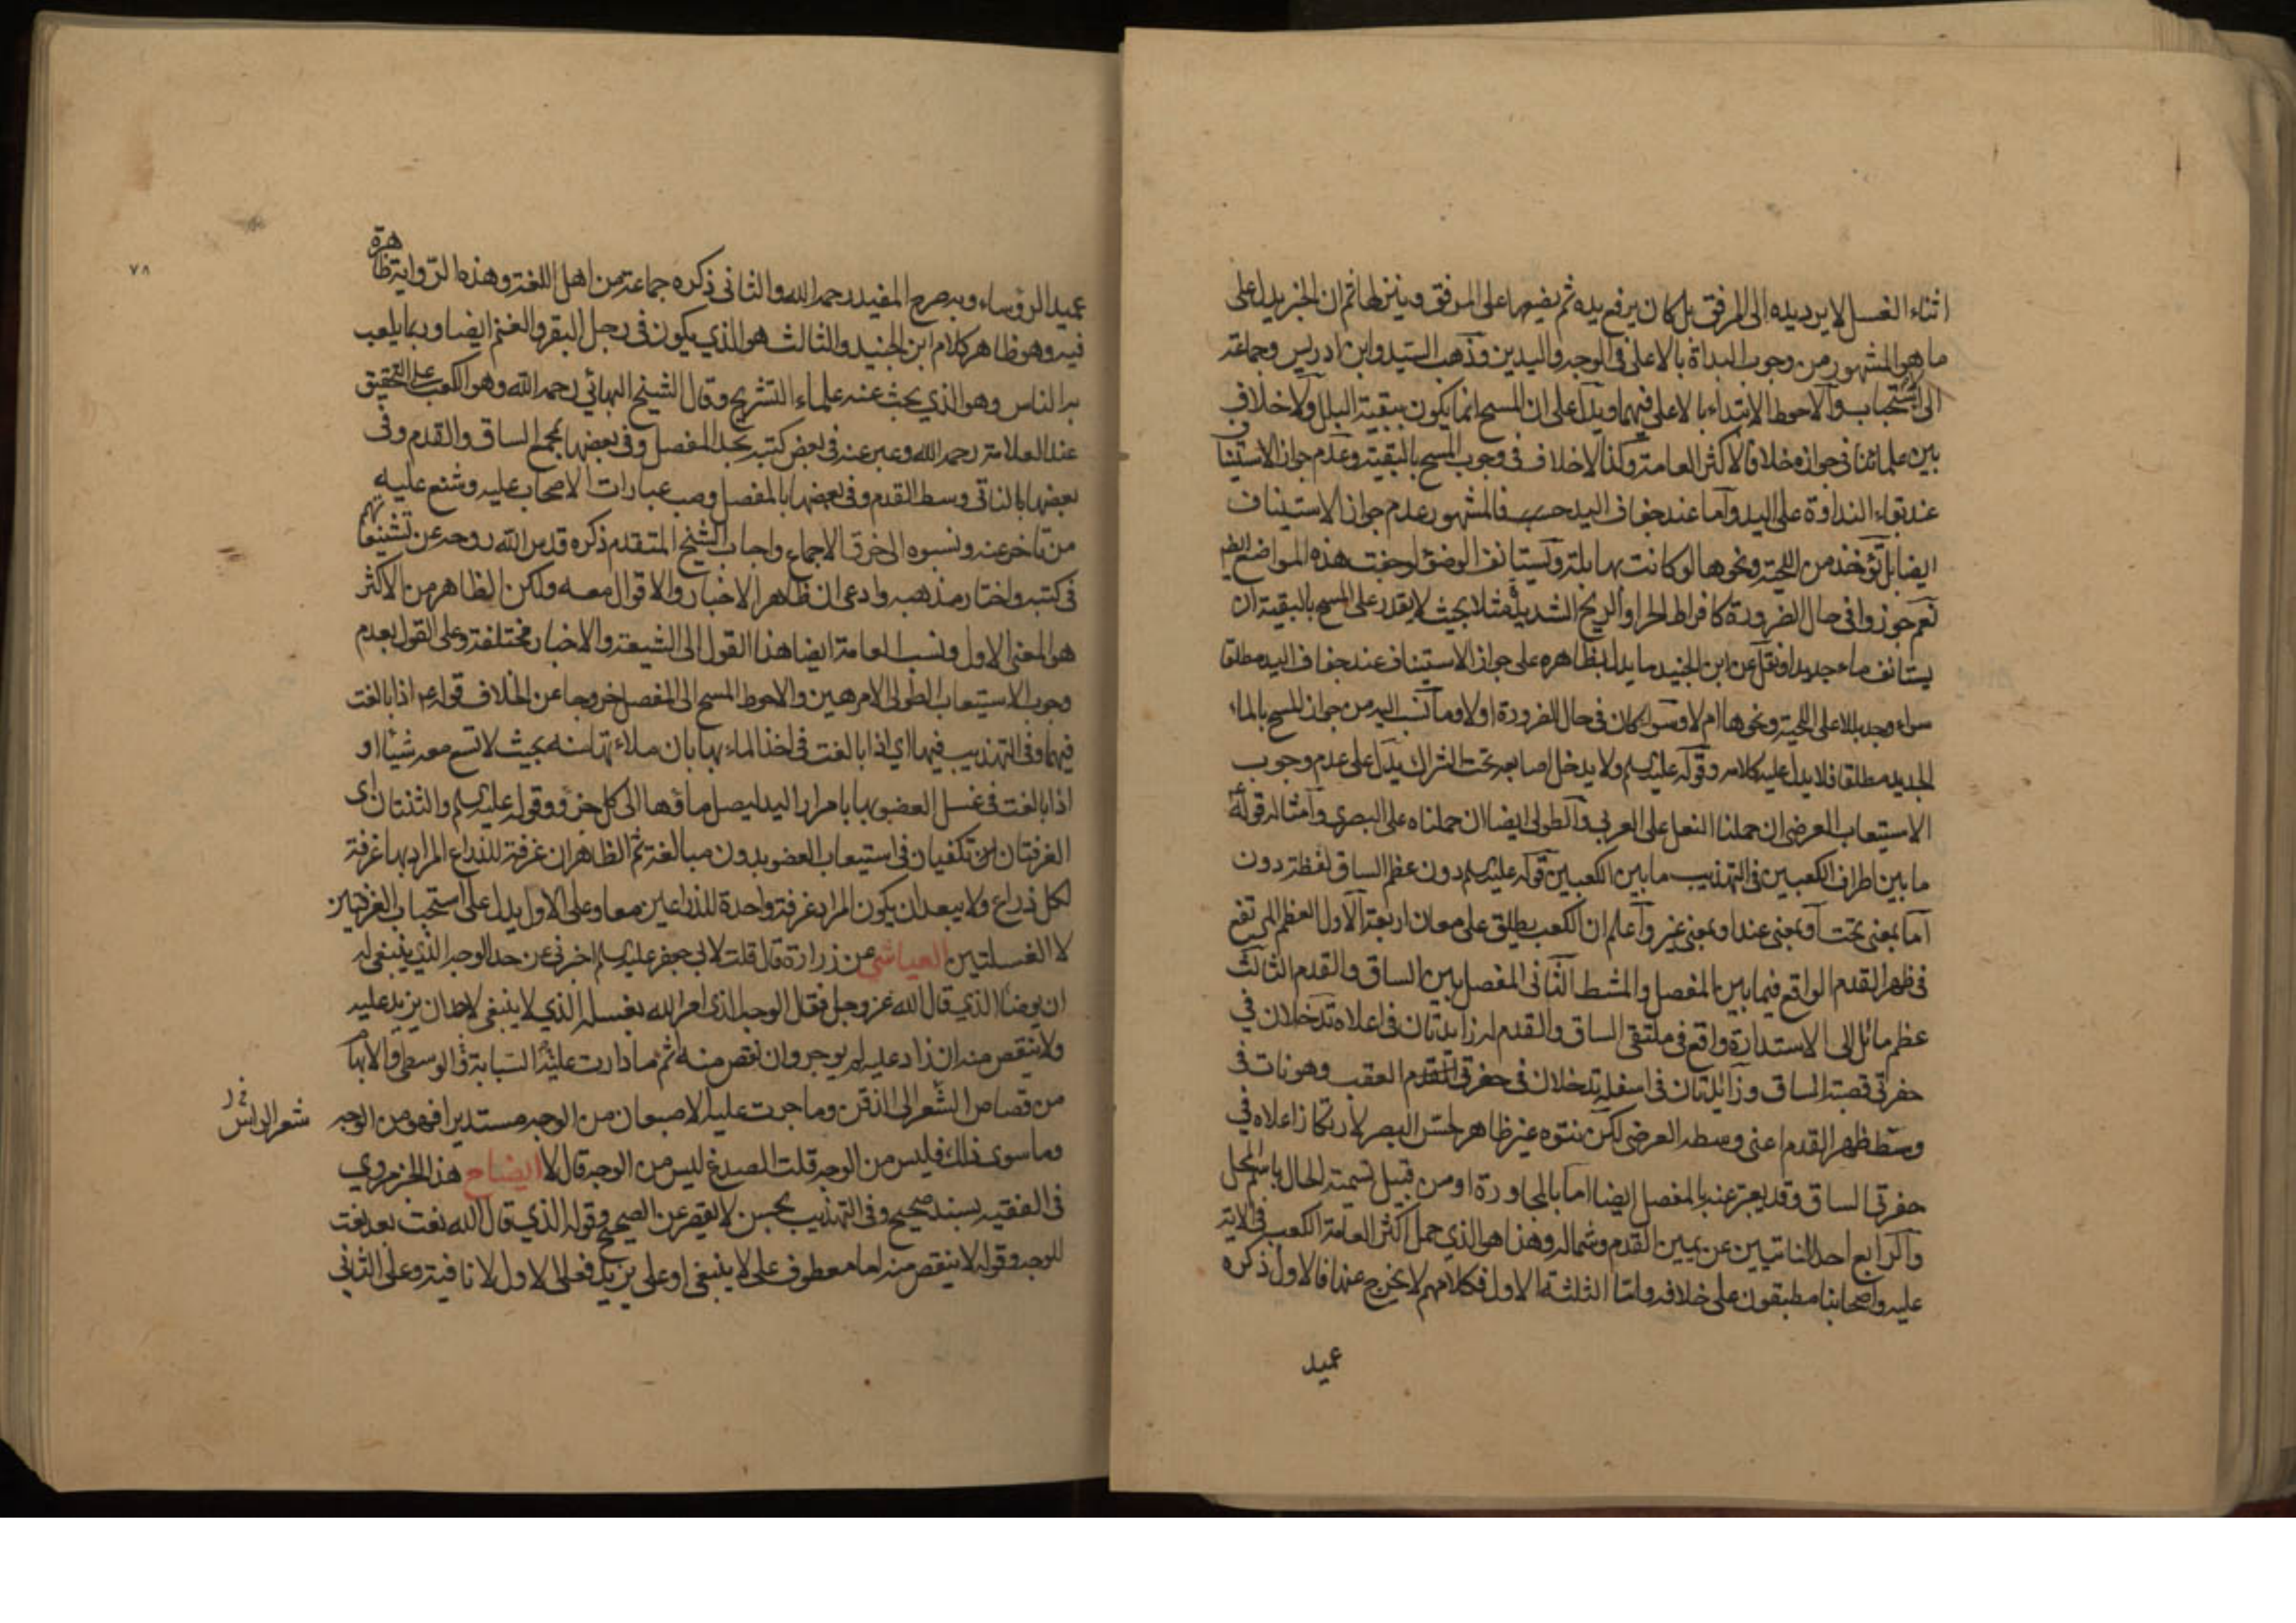 اثناء الغسل لا يرد يده الى المرفق بل كان يرفع يده ثم يضعها على المرفق وينزلها ثم ان الخبر يدل على
ما هو المشهور من وجوب البداة بالاعلى في الوجه واليدين وذهب السيد وابن ادريس وجماعة
الى استحبابه والاحوط الابتداء بالاعلى فيهما ويدل على ان المسح انما يكون ببقية البلل ولا خلاف
بين علمائنا في جوازه خلافا لاكثر العامة وكذا لا خلاف في وجوب المسح بالبقية وعدم جواز الاستيناف
عند بقاء النداوة على اليد واما عند جفاف اليد حسب فالمشهور عدم جواز الاستيناف
ايضا بل تؤخذ من اللحية ونحوها لو كانت بها بلة ويستانف الوضوء لو جفت هذه المواضع ايضا
نعم جوزوا في حال الضرورة كافراط الحر او الريح الشديد مثلا بحيث لا يقدر على المسح بالبقية ان
يستانف ماء جديدا ونقل عن ابن الجنيد ما يدل بظاهره على جواز الاستيناف عند جفاف اليد مطلقا
سواء وجد بللا على اللحية ونحوها ام لا وسواء كان في حال الضرورة او لا وما نسب اليه من جواز المسح بالماء
الجديد مطلقا فلا يدل عليه كلامه وقوله عليه السلم ولا يدخل اصابعه تحت الشراك يدل على عدم وجوب
الاستيعاب العرضي ان حملنا النعل على العربي والطولي ايضا ان حملناه على البصري وامثاله قوله ع
ما بين اطراف الكعبين في التهذيب ما بين الكعبين قوله عليه السلم دون عظم الساق لفظة دون
اما بمعنى تحت او بمعنى عند او بمعنى غير واعلم ان الكعب يطلق على معان اربعة الاول العظم المرتفع
في ظهر القدم الواقع فيما بين المفصل والمشط الثاني المفصل بين الساق والقدم الثالث
عظم مائل الى الاستدارة واقع في ملتقى الساق والقدم له زايدتان في اعلاه تدخلان في
حفرتي قصبة الساق وزائدتان في اسفله تدخلان في حفرتي العقب وهو نات في
وسط ظهر القدم اعني وسطه العرضي لكن نتوه غير ظاهر لحس البصر لارتكاز اعلاه في
حفرتي الساق وقد يعبر عنه بالمفصل ايضا اما بالمجاورة او من قبيل تسمية الحال باسم المحل
والرابع احد الناتيين عن يمين القدم وشماله وهذا هو الذي حمل اكثر العامة الكعب في الاية
عليه واصحابنا مطبقون على خلافه واما الثلثة الاول فكلامهم لا يخرج عنها فالاول ذكره
عميد
٧٨
عميد الرؤساء وبه صرح المفيد رحمه الله والثاني ذكره جماعة من اهل اللغة وهذه الرواية ظاهرة
فيه وهو ظاهر كلام ابن الجنيد والثالث هو الذي يكون في رجل البقر والغنم ايضا وربما يلعب
به الناس وهو الذي بحث عنه علماء التشريح وقال الشيخ البهائي رحمه الله وهو الكعب على التحقيق
عند العلامة رحمه الله وعبر عنه في بعض كتبه بحد المفصل وفي بعضها بمجمع الساق والقدم وفي
بعضها بالناتي وسط القدم وفي بعضها بالمفصل وصب عبارات الاصحاب عليه وشنع عليه
من تاخر عنه ونسبوه الى خرق الاجماع واجاب الشيخ المتقدم ذكره قدس الله روحه عن تشنيعاتهم
في كتبه واختار مذهبه وادعى ان ظاهر الاخبار والاقوال معه ولكن الظاهر من الاكثر
هو المعنى الاول ونسب العامة ايضا هذا القول الى الشيعة والاخبار مختلفة وعلى القول بعدم
وجوب الاستيعاب الطولي الامر هين والاحوط المسح الى المفصل خروجا عن الخلاف قوله ع اذا بالغت
فيها وفي التهذيب فيهما اي اذا بالغت في اخذ الماء بها بان ملاءتها منه بحيث لا تسع معه شيئا او
اذا بالغت في غسل العضو بها بامرار اليد ليصل ماؤها الى كل جزؤ وقوله عليه السلم والثنتان اى
الغرفتان تكفيان في استيعاب العضو بدون مبالغة ثم الظاهر ان غرفة للذراع المراد بها غرفة
لكل ذراع ولا يبعد ان يكون المراد غرفة واحدة للذراعين معا وعلى الاول يدل على استحباب الغرفتين
لا الغسلتين العياشي عن زرارة قال قلت لابي جعفر عليه السلم اخبرني عن حد الوجه الذي ينبغي له
ان يوضأ الذي قال الله عز وجل فقال الوجه الذي امر الله بغسله الذي لا ينبغي لاحد ان يزيد عليه
ولا ينقص منه ان زاد عليه لم يوجر وان نقص منه اثم ما دارت عليه السبابة والوسطى والابهام
من قصاص الشعر الى الذقن وما جرت عليه الاصبعان من الوجه مستديرا فهو من الوجه
شعر الراس
وما سوى ذلك فليس من الوجه قلت الصدغ ليس من الوجه قال لا ايضاح هذا الخبر مروي
في الفقيه بسند صحيح وفي التهذيب بحسن لا يقصر عن الصحيح وقوله الذي قال الله نعت بعد نعت
للوجه وقوله لا ينقص منه اما معطوف على لا ينبغي او على يزيد فعلى الاول لا نافية وعلى الثاني